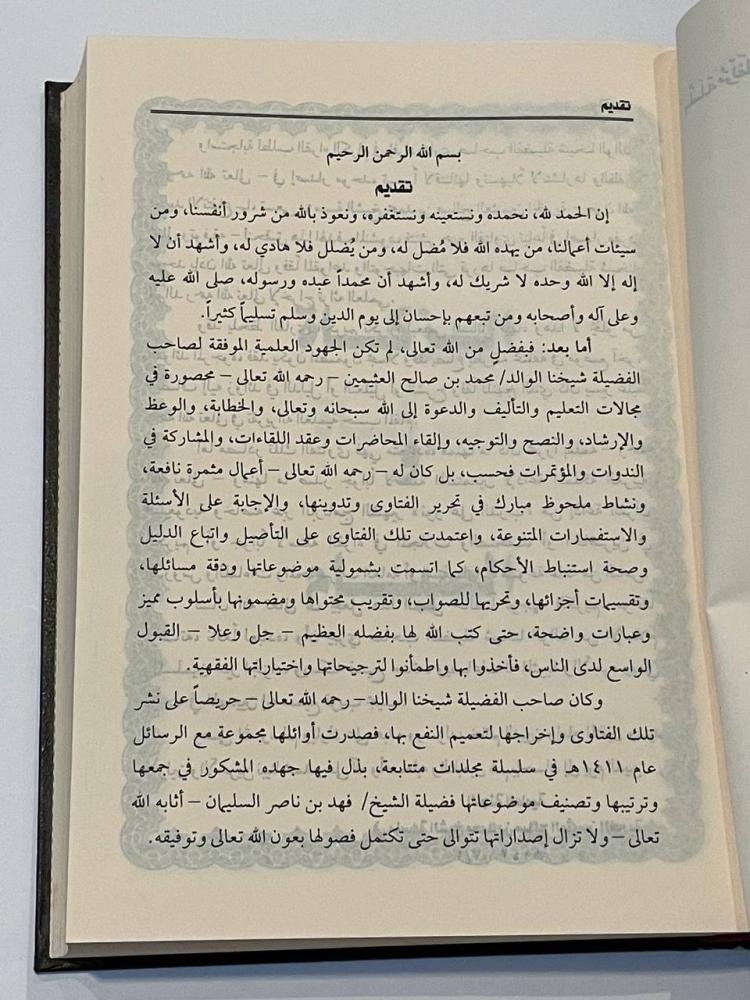 تقديم
بسم الله الرحمن الرحيم
تقديم
إن الحمد لله، نحمده ونستعينه ونستغفره، ونعوذ بالله من شرور أنفسنا، ومن
سيئات أعمالنا، من يهده الله فلا مُضل له، ومن يُضلل فلا هادي له، وأشهد أن لا
إله إلا الله وحده لا شريك له، وأشهد أن محمداً عبده ورسوله، صلى الله عليه
وعلى آله وأصحابه ومن تبعهم بإحسان إلى يوم الدين وسلم تسليماً كثيراً.
أما بعد: فبفضلٍ من الله تعالى، لم تكن الجهود العلمية الموفقة لصاحب
الفضيلة شيخنا الوالد/ محمد بن صالح العثيمين – رحمه الله تعالى – محصورة في
مجالات التعليم والتأليف والدعوة إلى الله سبحانه وتعالى، والخطابة، والوعظ
والإرشاد، والنصح والتوجيه، وإلقاء المحاضرات وعقد اللقاءات، والمشاركة في
الندوات والمؤتمرات فحسب، بل كان له – رحمه الله تعالى – أعمال مثمرة نافعة،
ونشاط ملحوظ مبارك في تحرير الفتاوى وتدوينها، والإجابة على الأسئلة
والاستفسارات المتنوعة، واعتمدت تلك الفتاوى على التأصيل واتباع الدليل
وصحة استنباط الأحكام، كما اتسمت بشمولية موضوعاتها ودقة مسائلها،
وتقسيمات أجزائها، وتحريها للصواب، وتقريب محتواها ومضمونها بأسلوب مميز
وعبارات واضحة، حتى كتب الله لها بفضله العظيم – جل وعلا – القبول
الواسع لدى الناس، فأخذوا بها واطمأنوا لترجيحاتها واختياراتها الفقهية.
وكان صاحب الفضيلة شيخنا الوالد – رحمه الله تعالى – حريصاً على نشر
تلك الفتاوى وإخراجها لتعميم النفع بها، فصدرت أوائلها مجموعة مع الرسائل
عام ١٤١١هـ في سلسلة مجلدات متتابعة، بذل فيها جهده المشكور في جمعها
وترتيبها وتصنيف موضوعاتها فضيلة الشيخ/ فهد بن ناصر السليمان – أثابه الله
تعالى – ولا تزال إصداراتها تتوالى حتى تكتمل فصولها بعون الله تعالى وتوفيقه.